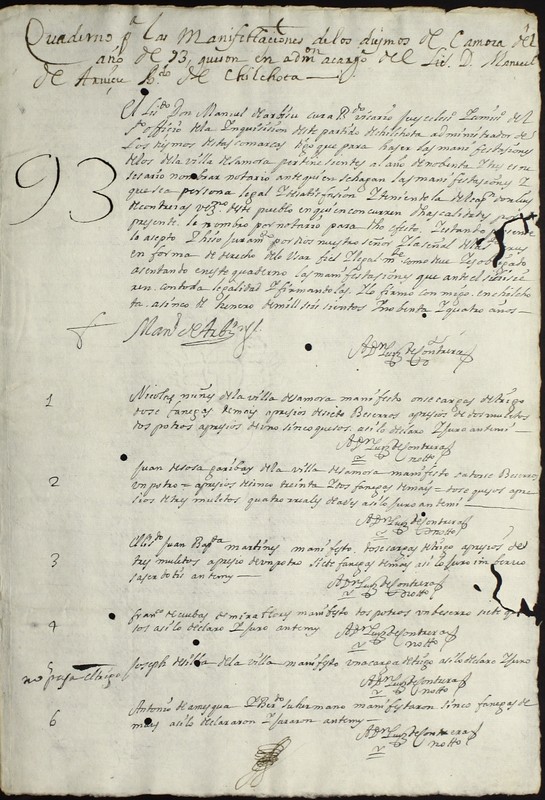 Quaderno pa. las Manifestaciones de los diesmos de Camora del
año de 93, que son en admon. a cargo del Lic. D. Manuel
de Arbiçu Bdo. de Chilchota
93
El Lisdo. Don Manuel de arbisu cura Bdo. vicario Jues eclesi.
Sto. officio de la Inquisicion deste partido de chilchota administrador de
Los diesmos destas comarcas dijo que para haser las manifestasiones
de los de la villa de samora pertenesientes al año de nobenta y tres es ne
sesario nombrar notario ante quien se hagan las manifestasiones y
que sea persona legal y de satisfasion y teniendo la
de contreras veso. deste pueblo en quien concurren dhas calidades
presente le nombro por notario para dho efeto. y estando presente
lo asepto y hiso juramto. por dios nuestro señor y la señal de la
en forma de derecho de usar fiel y legalmte.
asentando en este quaderno las manifestasiones que ante el se hisie
ren con toda legalidad y firmandolas. y lo firmo con migo en chilcho
ta. a sinco de henero de mill seisientos y nobenta y quatro años
Manl. de Arbisu
Adrn. Luis de Contreras
1
Nicolas nuñes de la villa de samora manifesto onse cargas de trigo
dose fanegas de mais apresios de siete Beserros apresios de dos muletos
dos potros apresios de uno sinco quesos. asi lo declaro y juro ante mi
Adrn. Luis de Contreras
notto
2
Juan de sosa garibay de la villa de samora manifesto catorse Beserros
un potro apresios de sinco treinta y dos fanegas de mais dose quesos apre
sios de tres muletos quatro reales asi lo juro ante mi
Adrn. Luis de Contreras
notto
3
Juan Bapta. martines manifesto dose cargas de trigo apresios de
tres muletos apresio de un potro siete fanegas de mais asi lo juro in berbo
saserdotis ante my
Adrn. Luis de Contreras
notto
4
Franco. de cuebas de miraflores manifesto dos potros un beserro siete que
sos asi lo declaro y juro ante my
Adrn. Luis de Contreras
notto
5
no passa el trigo
Joseph de silba de la villa manifesto una carga de trigo asi lo declaro y juro
Adrn. Luis de Contreras
notto
6
Antonio de amesqua y Berdo. su hermano manifestaron sinco fanegas de
mais asi lo declararon y juraron ante my
Adrn. Luis de Contreras
notto